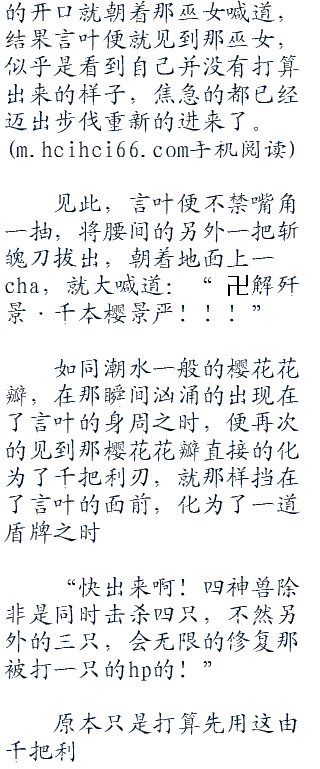 的开口就朝着那巫女喊道，
结果言叶便就见到那巫女，
似乎是看到自己并没有打算
出来的样子，焦急的都已经
迈出步伐重新的进来了。
(m.hcihci66.com手机阅读)
见此，言叶便不禁嘴角
一抽，将腰间的另外一把斩
魄刀拔出，朝着地面上一
cha，就大喊道：“卍解歼
景·千本樱景严！！！”
如同潮水一般的樱花花
瓣，在那瞬间汹涌的出现在
了言叶的身周之时，便再次
的见到那樱花花瓣直接的化
为了千把利刃，就那样挡在
了言叶的面前，化为了一道
盾牌之时
“快出来啊！四神兽除
非是同时击杀四只，不然另
外的三只，会无限的修复那
被打一只的hp的！”
原本只是打算先用这由
千把利